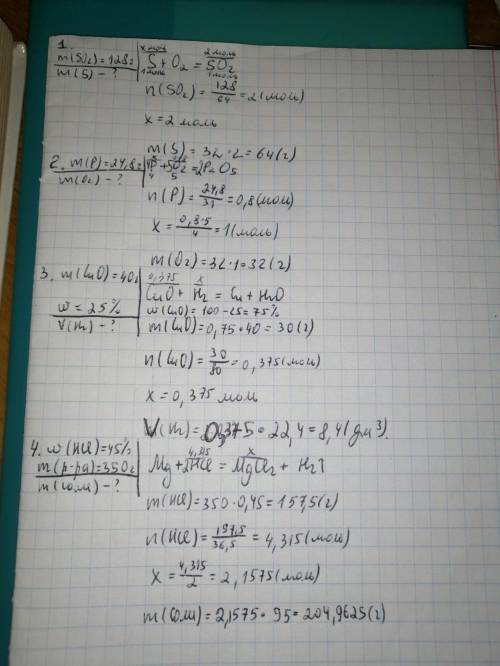 1.
m(SO₂)=128г
m(S) - ?
x моль 2 моль
S + O₂ = SO₂
1 моль 1 моль
n(SO₂) = 128/64 = 2 (моль)
x = 2 моль
m(S) = 32 · 2 = 64 (г)
2. m(P)=24,8г
m(O₂) - ?
4P + 5O₂ = 2P₂O₅
4 5
n(P) = 24,8/31 = 0,8 (моль)
x = 0,8·5/4 = 1 (моль)
m(O₂) = 32·1 = 32 (г)
3. m(CuO)=40г
w = 25%
V(H₂) - ?
0,375 x
CuO + H₂ = Cu + H₂O
w(CuO) = 100 - 25 = 75%
m(CuO) = 0,75 · 40 = 30 (г)
n(CuO) = 30/80 = 0,375 (моль)
x = 0,375 моль
V(H₂) = 0,375 · 22,4 = 8,4 (дм³).
4. w(HCl)=45%
m(р-ра)=350г
m(соли) - ?
4,315 x
Mg + 2HCl = MgCl₂ + H₂↑
m(HCl) = 350 · 0,45 = 157,5 (г)
n(HCl) = 157,5/36,5 = 4,315 (моль)
x = 4,315/2 = 2,1575 (моль)
m(соли) = 2,1575 · 95 = 204,9625 (г)